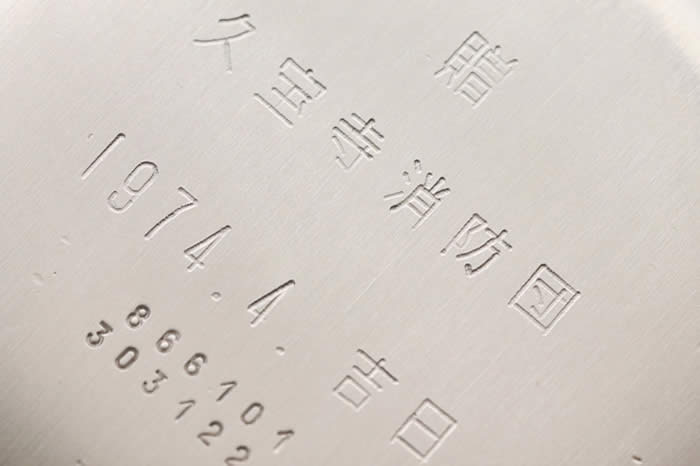 器
久 寺消防団
1974.A. 吉
866101
303122